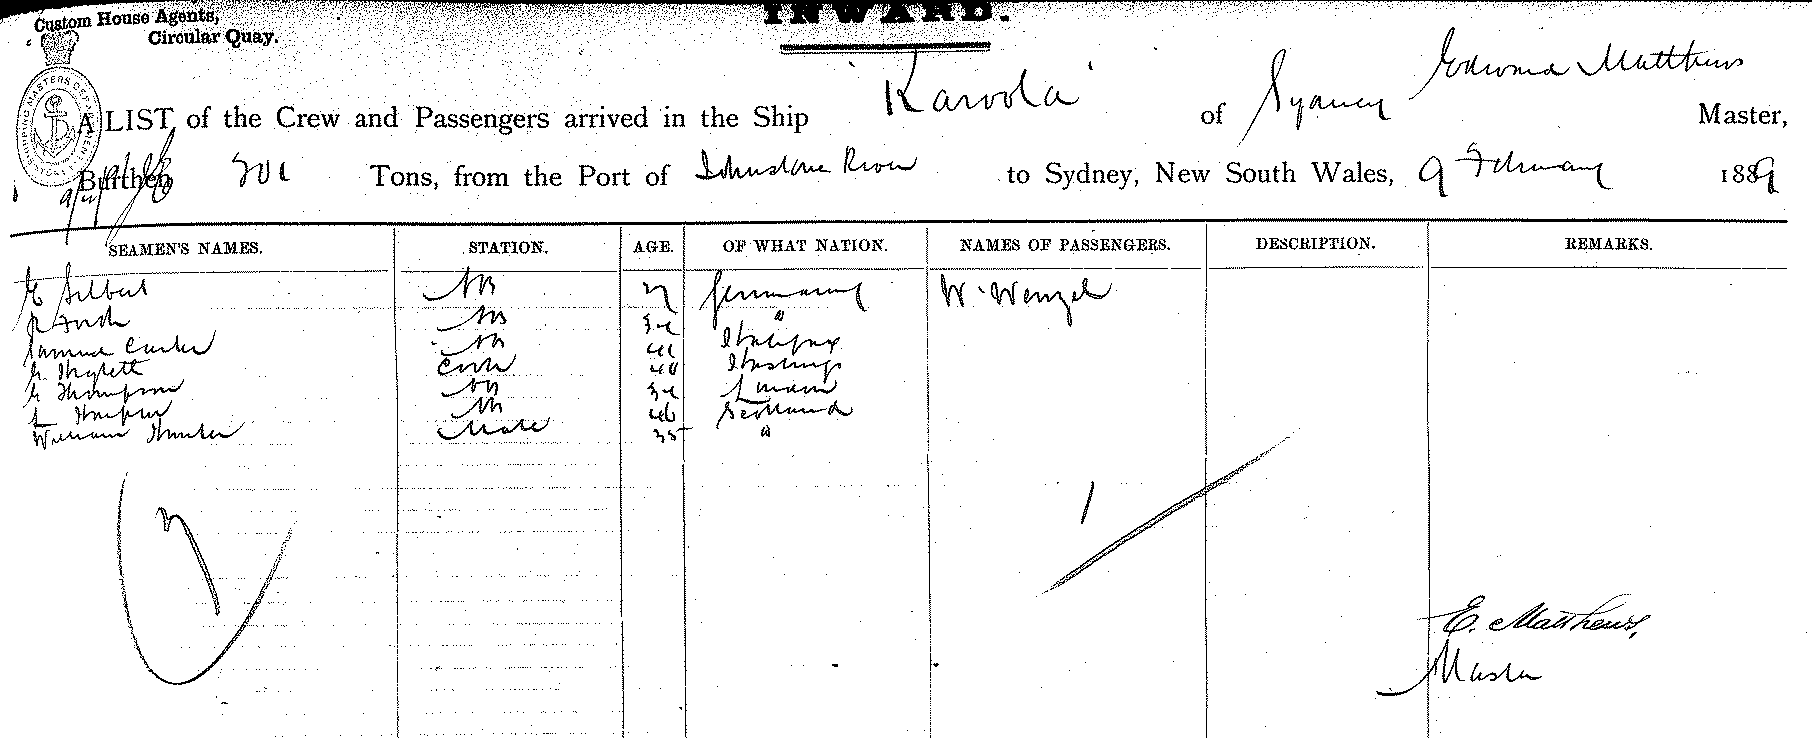 Custom House Agents,
Circular Quay.
INWARD.
SHIPPING MASTERS DEPARTMENT
A LIST of the Crew and Passengers arrived in the Ship "Karoola" of Sydney Edward Matthews Master,
Burthen Tons, from the Port of Johnstone River to Sydney, New South Wales, 9 February 1889
SEAMEN'S NAMES. STATION. AGE. OF WHAT NATION. NAMES OF PASSENGERS. DESCRIPTION. REMARKS.
AB Germany W. Wenzel
AB "
AB 41 Halifax
Cook 40 Hastings
G Thompson AB
AB 46 Scotland
William Hunter Mate 35 "
7
1
E. Matthews,
Master